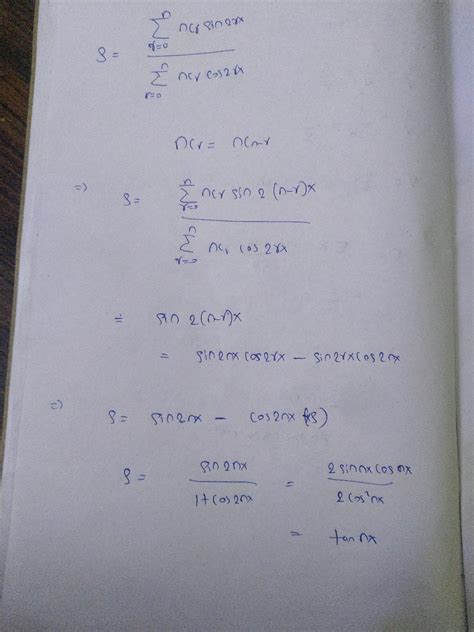 S = \frac{\sum_{r=0}^{n} ncr sin2rx}{\sum_{r=0}^{n} ncr cos2rx}
ncr = ncn-r
=> S = \frac{\sum_{r=0}^{n} ncr sin 2(n-r)x}{\sum_{r=0}^{n} ncr cos 2rx}
= sin 2(n-r)x
= sin2nx cos2rx - sin2rx cos2nx
=> S = sin2nx - cos2nx (S)
S = \frac{sin2nx}{1+cos2nx} = \frac{2 sinnx cosnx}{2 cos²nx}
= tannx